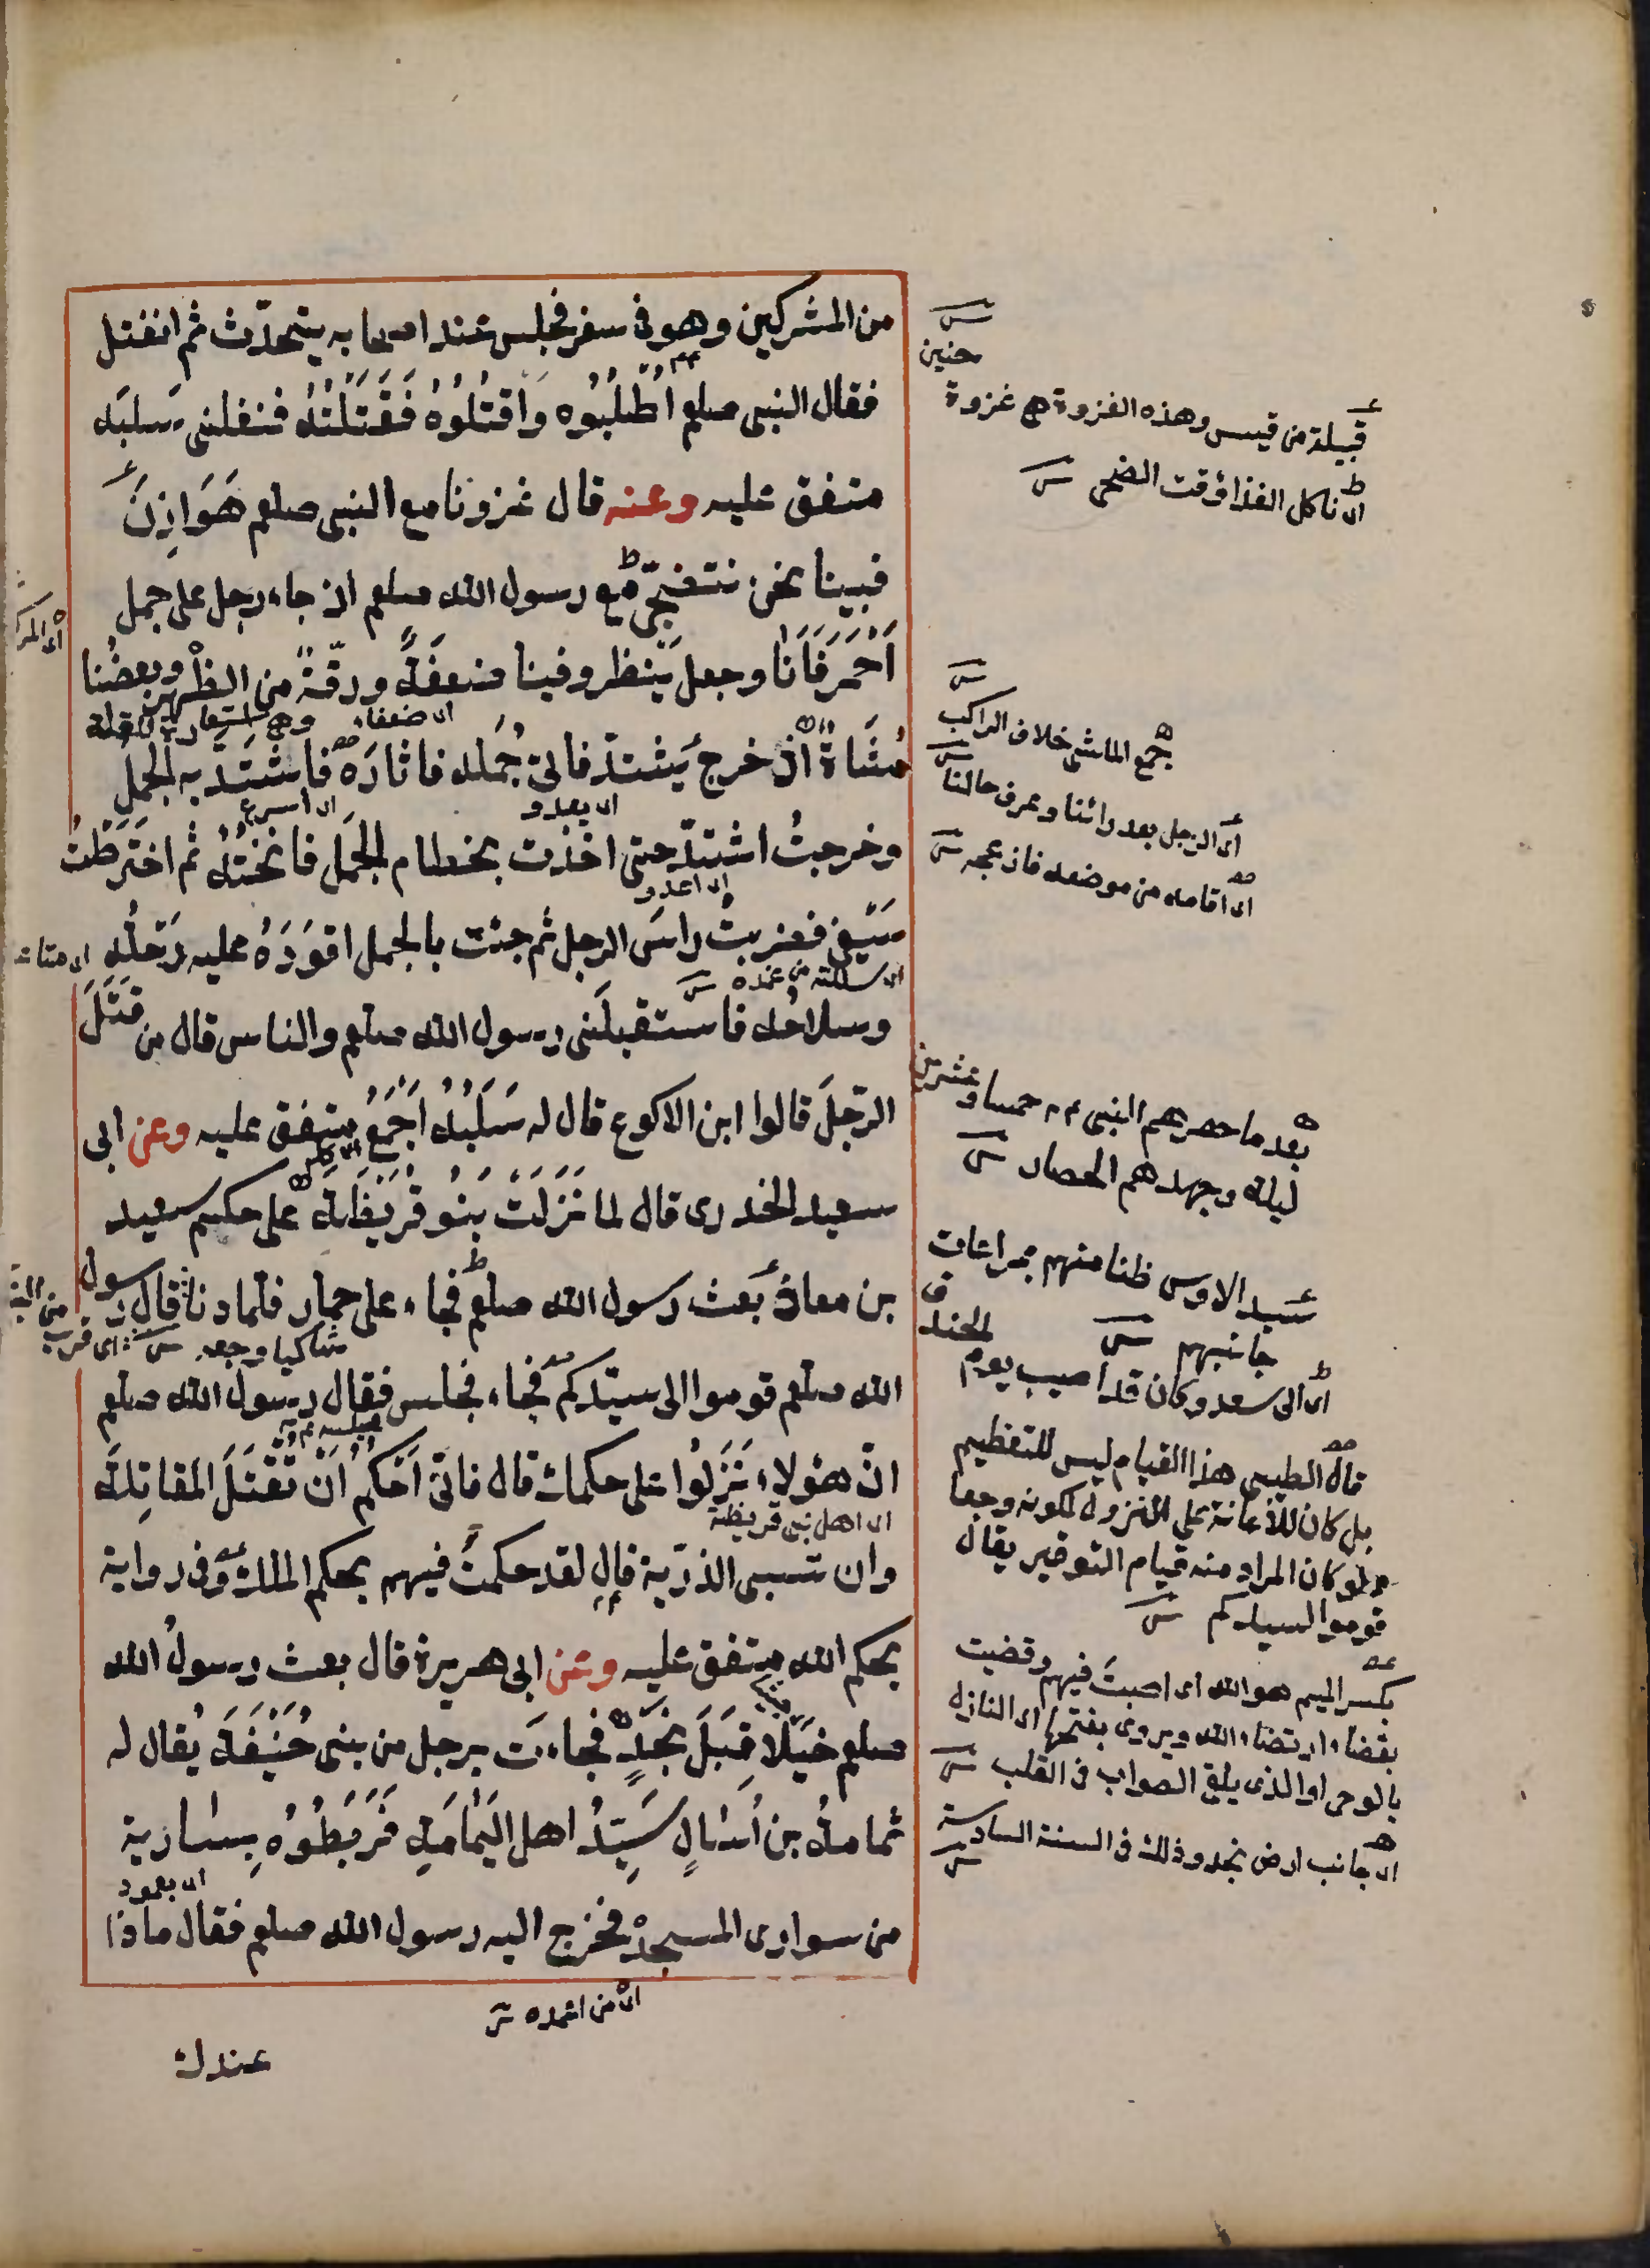 من المشركين وهو فى سفر فجلس عند اصحابه يتحدّث ثم انفتل
فقال النبى صلعم اُطْلُبُوه وَاقتُلُوْهُ فَقَتَلْتُهُ فنفلنى سلبَه
متفق عليه وعنه قال غزونا مع النبى صلعم هَوَازِنَ
فبينا نحن نتضحّى مع رسول الله صلعم اذ جاء رجل على جمل
اَحْمَرَ فَاَنَاخَ وجعل يَنظر وفينا ضعفَةٌ ورقّةٌ من الظَهْرِ وبعضُنا
اى ضعفاء وهى استعارة للقلة
مُشَاةٌ اذ خرج يَشتدّ فاتى جُمله فاثارَه فاشتَدّ به الجملُ
اى يعدو اى اسرع
وخرجتُ اشتدّ حتى اخذت بخطام الجَمَل فانختُهُ ثم اختَرطْتُ
اى اعدو
سَيْفى فضربتُ راسَ الرجل ثم جئت بالجمل اقوْدَهُ عليه رَحلُه
اى سللته من غمده
وسلاحُه فاستقبلَنى رسول الله صلعم والناس قال من قَتَلَ
الرّجلَ قالوا ابن الاكوع قال له سَلَبُهُ اَجْمَعُ متفق عليه وعن ابى
سعيد الخدرى قال لما نَزَلَتْ بَنُو قُرَيْظَةَ على حكم سعيد
بن معاذ بَعَث رسول الله صلعم فجاء على حمار فلما دنا قال رسول
شاكيا وجعه اى قرب
الله صلعم قوموا الى سيّدكم فجاء فجلس فقال رسول الله صلعم
انّ هؤلاء نَزَلُوا على حكمك قال فانّى اَحْكُمُ اَنْ تُقْتَلَ المقاتِلَة
اى اهل بنى قريظة
وان تسبى الذرّية قال لقد حكمتَ فيهم بحكم الملك وفى رواية
بحكم الله متفق عليه وعن ابى هريرة قال بعث رسولُ الله
صلعم خَيْلًا قِبَلَ نَجْدٍ فجاءَت برجل من بنى حُنَيْفَةَ يُقال له
ثمامةُ بن اُثالٍ سَيِّدُ اهل اليَمَامَةِ فَرَبَطُوْهُ بِسارية
اى بعمود
من سوارى المسجد فخرج اليه رسول الله صلعم فقال ماذا
اى من اعمده
عندك
حنين
قبيلة من قيس وهذه الغزوة هى غزوة
اى ناكل الغذا وقت الضحى
جمع الماشى خلاف الراكب
اى الرجل بعد رائنا وعرف حالنا
اى اقامه من موضعه
بعد ما حصرهم النبى عم خمسا وعشرين
ليلة وجهدهم الحصار
سيد الاوس ظنا منهم مراعات
جانبهم
اى الى سعد وكان قد اصيب يوم
الخندق
قال الطيبى هذا القيام ليس للتعظيم
بل كان للاعانة على النزول لكونه وجعا
ولو كان المراد منه قيام التوقير يقال
قوموا لسيدكم
بكسر الميم هو الله اى اصبت فيهم وقضيت
بقضاء ارتضاه الله ويروى بفتحها اى النازل
بالوحى او الذى يلقى الصواب فى القلب
اى جانب ارض نجد وذلك فى السنة السادسة